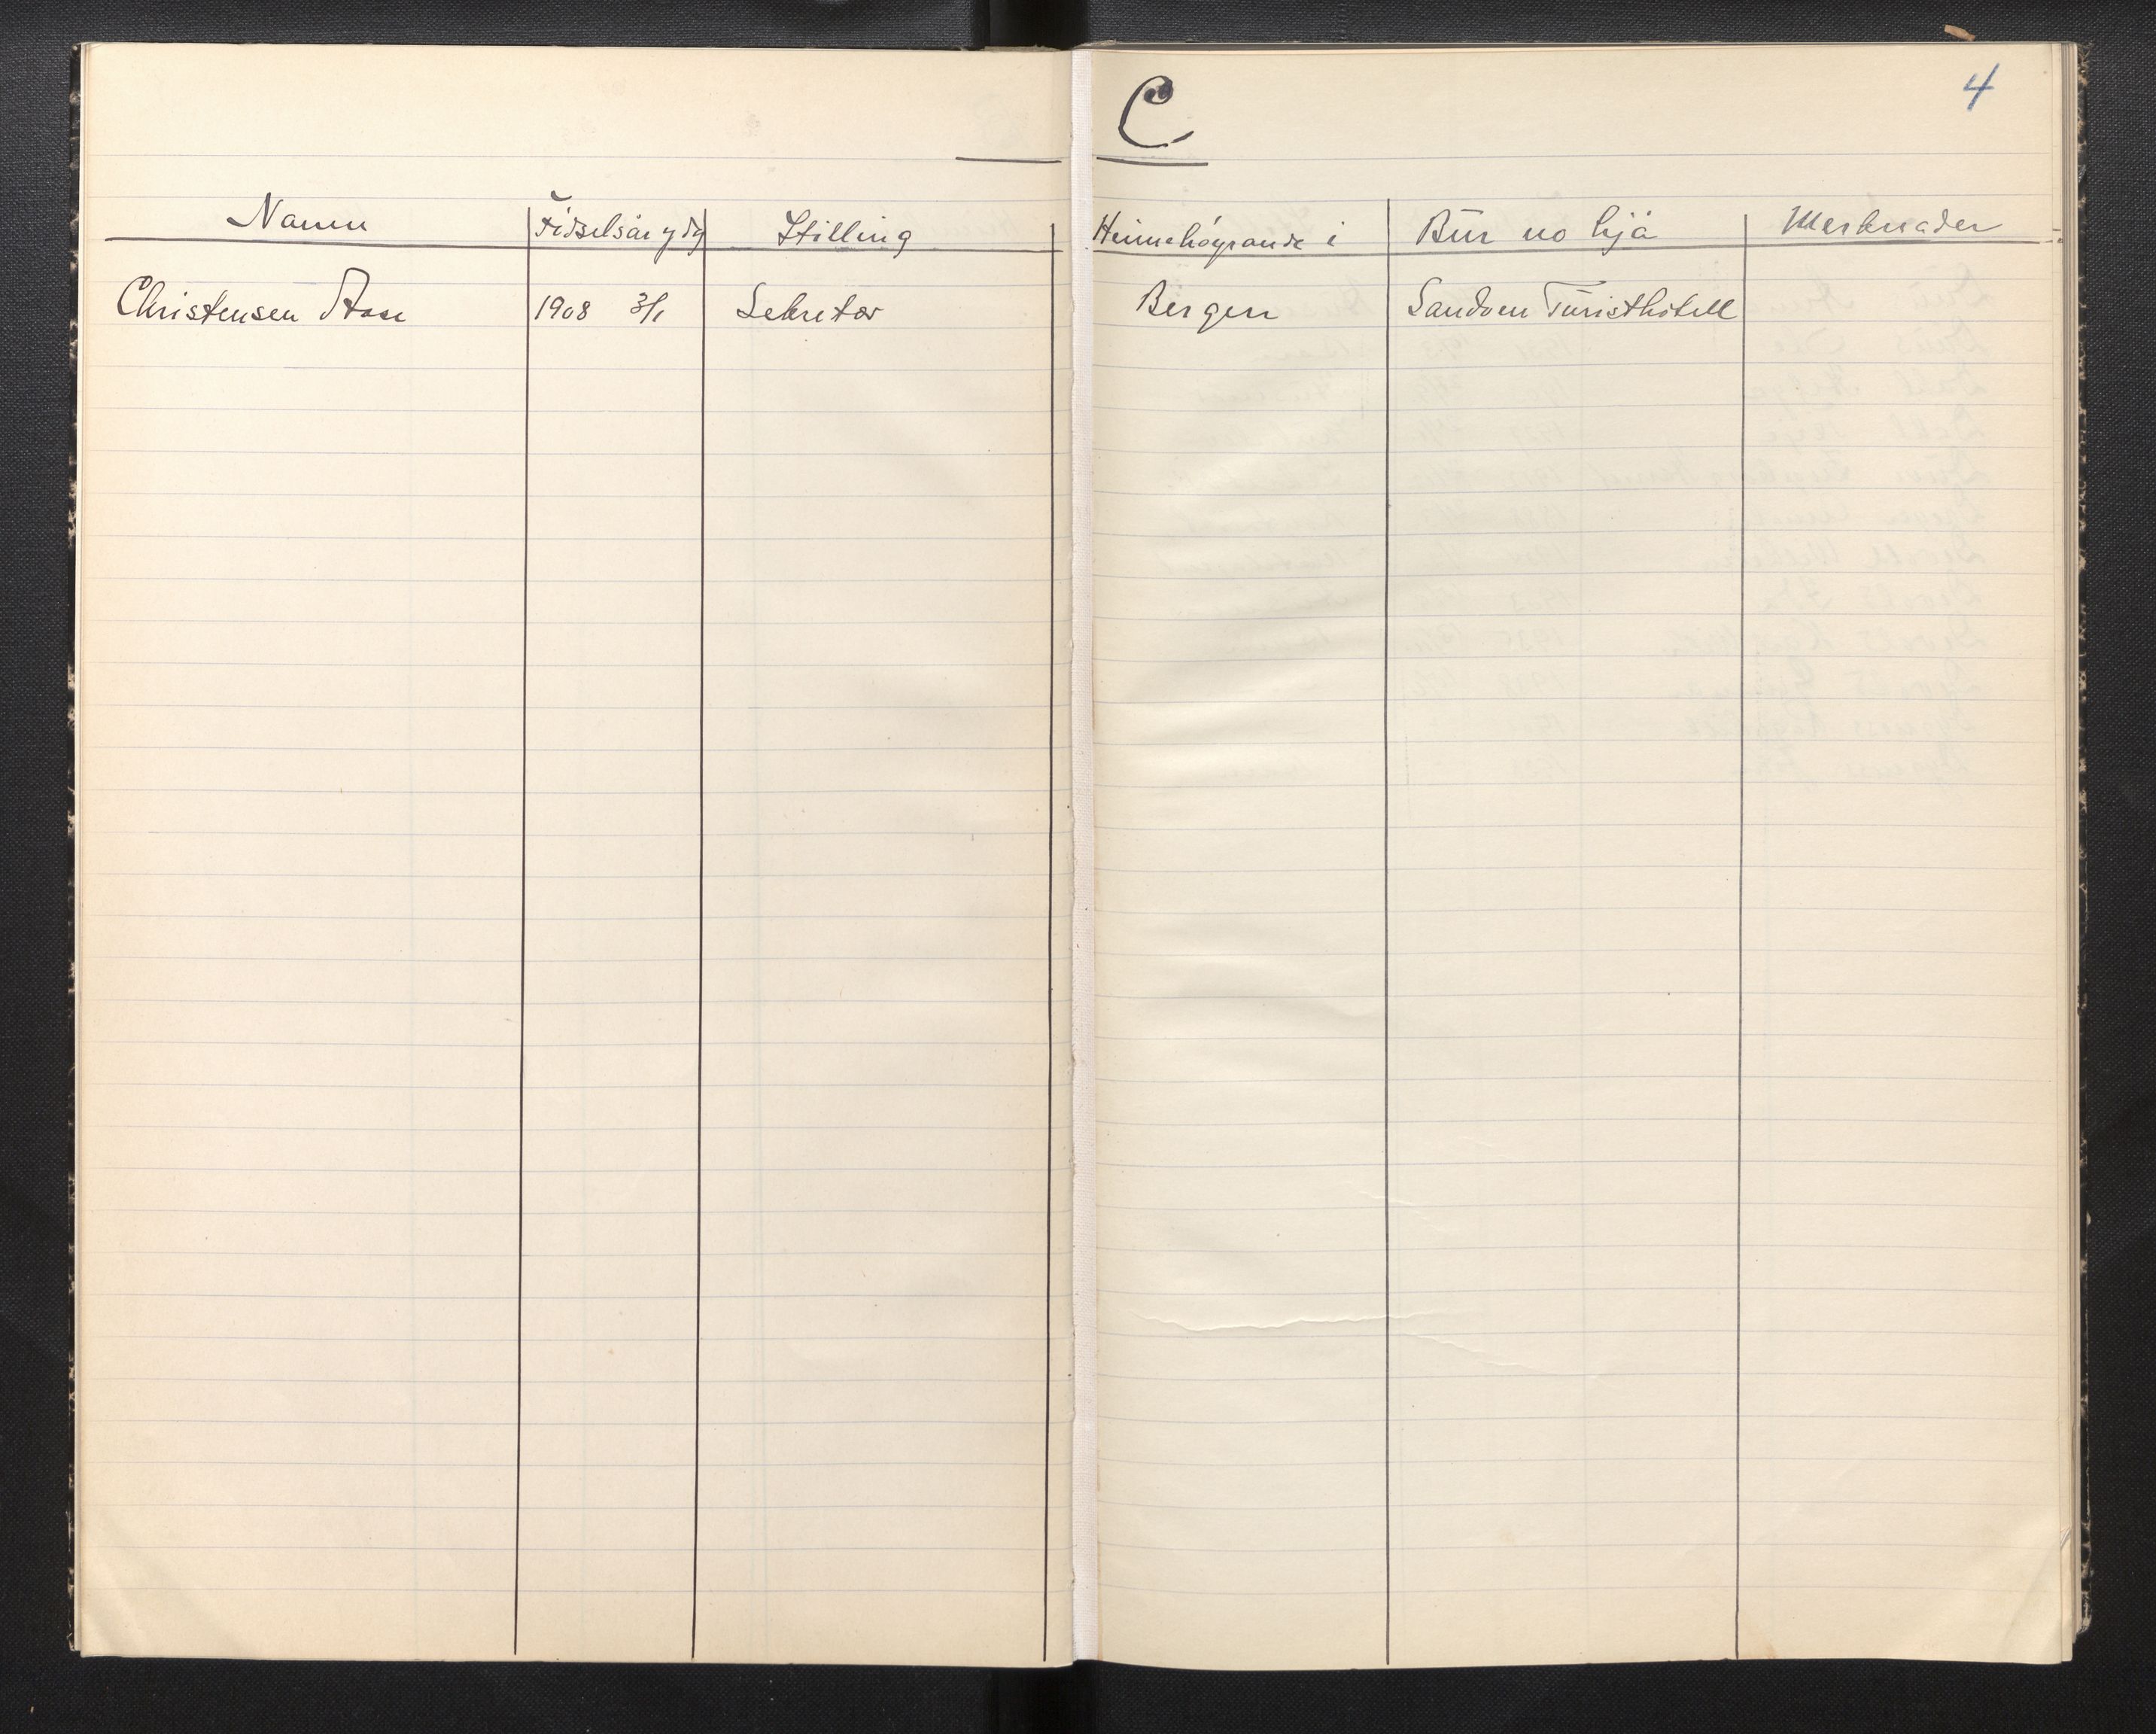 C
4
Namn Födselsår y dg Stilling Heimehøyrande i Bur no hjå Merknader
Christensen Aase 1908 3/1 Sekretær Bergen Sandven Turisthotell